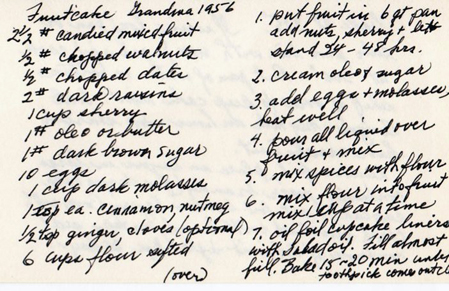 Fruitcake Grandma 1956
2½ # candied mixed fruit
½ # chopped walnuts
½ # chopped dates
2 # dark raisins
1 cup sherry
1 # oleo or butter
1 # dark brown sugar
10 eggs
1 cup dark molasses
1 tsp ea. cinnamon nutmeg
½ tsp ginger, cloves (optional)
6 cups flour sifted
(over)
1. put fruit in 6 qt pan
add nuts, sherry + let
stand 24 - 48 hrs.
2. cream oleo & sugar
3. add eggs + molasses,
beat well
4. pour all liquid over
fruit + mix
5. mix spices with flour
6. mix flour into fruit
mix 1 cup at a time
7. oil foil cupcake liners
with salad oil. Fill almost
full. Bake 15-20 min until
toothpick comes out